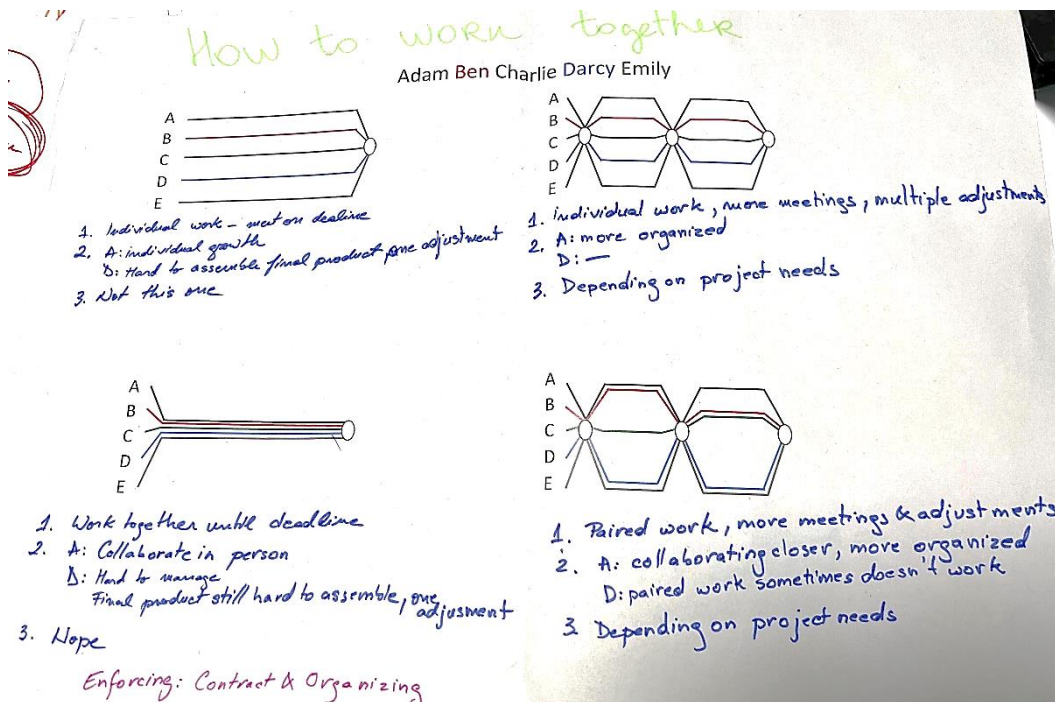 How to work together
Adam Ben Charlie Darcy Emily
A
B
C
D
E
1. Individual work - meet on dealine
2. A: individual growth
D: Hard to assemble final product, one adjustment
3. Not this one
A
B
C
D
E
1. Individual work, more meetings, multiple adjustments
2. A: more organized
D: —
3. Depending on project needs
A
B
C
D
E
1. Work together until deadline
2. A: Collaborate in person
D: Hard to manage
Final product still hard to assemble, one
adjusment
3. Nope
A
B
C
D
E
1. Paired work, more meetings & adjustments
2. A: collaborating closer, more organized
D: paired work sometimes doesn't work
3 Depending on project needs
Enforcing: Contract & Organizing